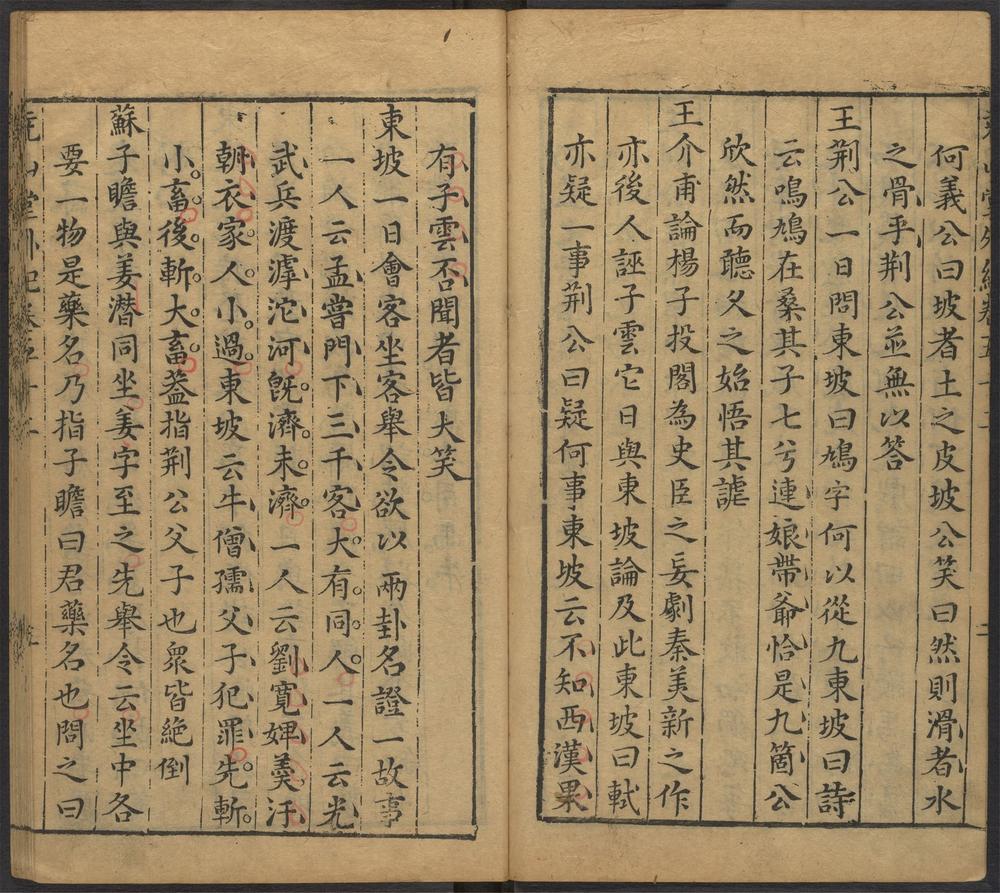 何義公曰坡者土之皮坡公笑曰然則滑者水
之骨乎荆公並無以答
王荆公一日問東坡曰鳩字何以從九東坡曰詩
云鳴鳩在桑其子七兮連娘帶爺恰是九箇公
欣然而聽久之始悟其謔
王介甫論楊子投閣為史臣之妄劇秦美新之作
亦後人誣子雲它日與東坡論及此東坡曰軾
亦疑一事荆公曰疑何事東坡云不知西漢果
有子雲否聞者皆大笑
東坡一日會客坐客舉令欲以兩卦名證一故事
一人云孟嘗門下三千客大有同人一人云光
武兵渡滹沱河旣濟未濟一人云劉寬婢羹汙
朝衣家人小過東坡云牛僧孺父子犯罪先斬
小畜後斬大畜葢指荆公父子也衆皆絶倒
蘇子瞻與姜潛同坐姜字至之先舉令云坐中各
要一物是藥名乃指子瞻曰君藥名也問之曰